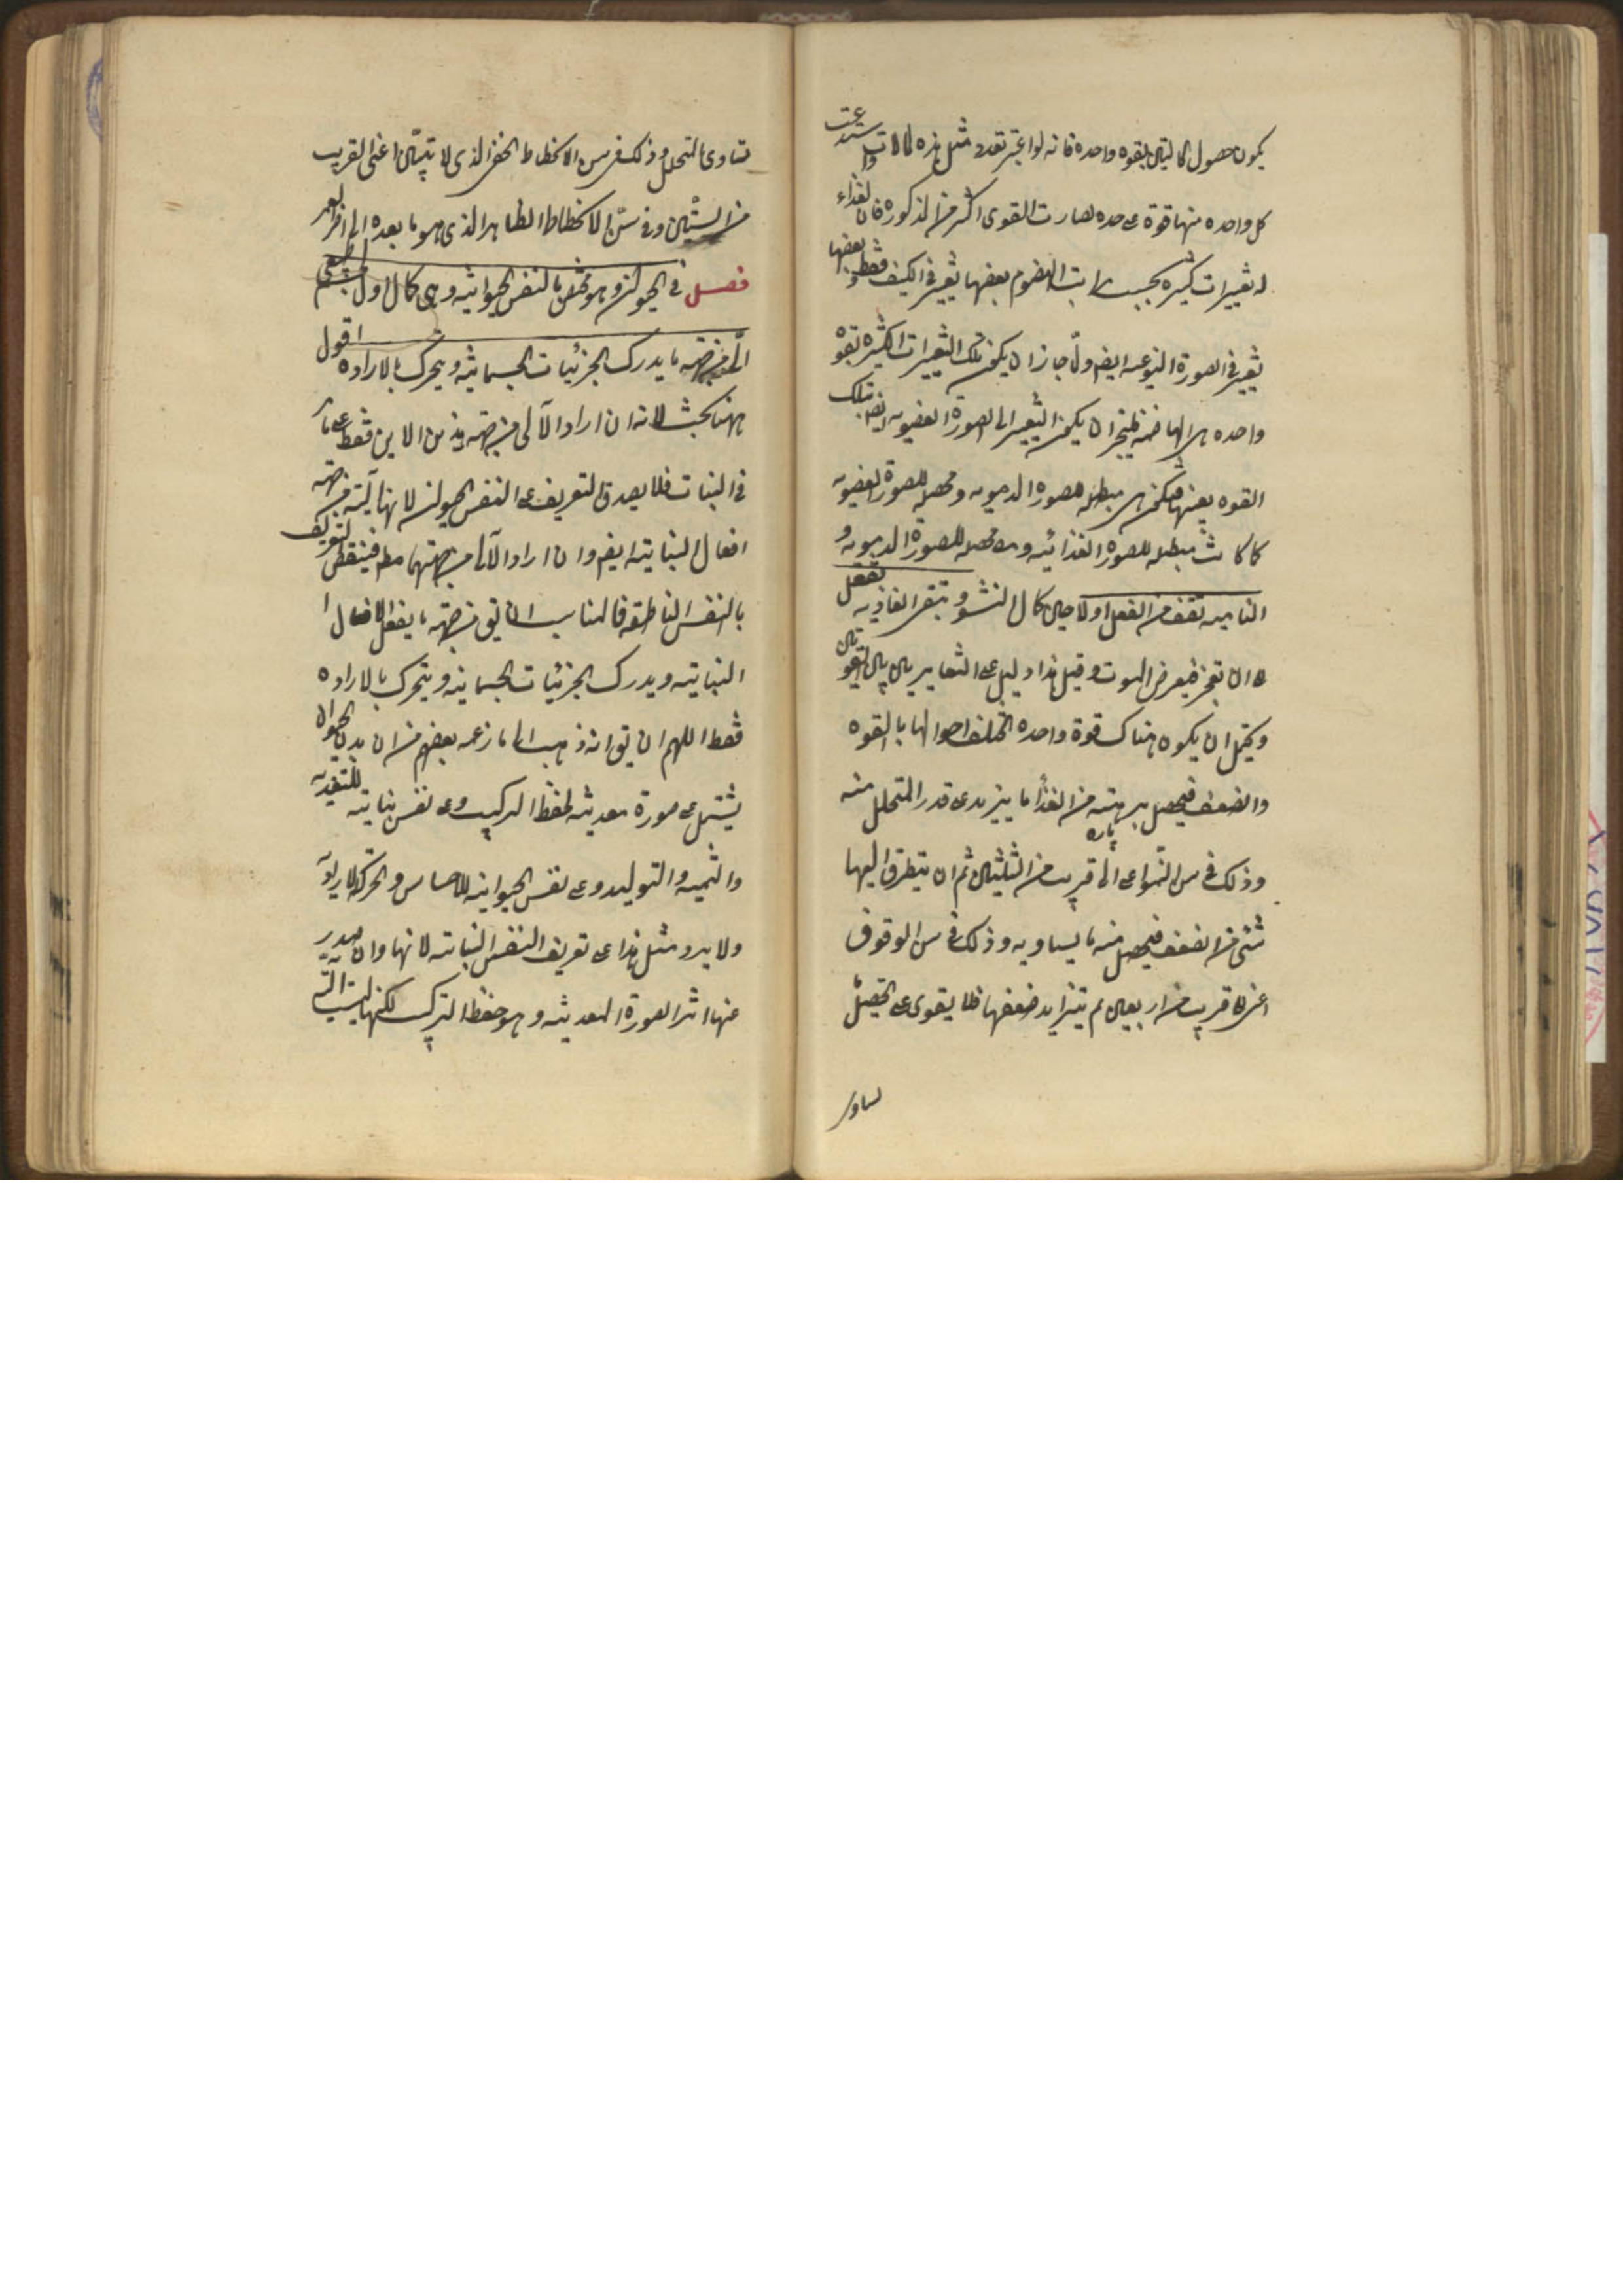 يكون حصول الحالتين بقوه واحده فانه لو اعتبر تعدد مثل هذه الحالات واستدعت
كل واحده منها قوة على حده لصارت القوى اكثر من المذكوره فان للغذاء
له تغييرات كثيره بحسب مراتب الهضوم بعضها تغيير فى الكيف فقط وبعضها
تغيير فى الصورة النوعيه ايضا ولما جاز ان يكون تلك التغييرات الكثيره بقوة
واحده هى الهاضمه فليجز ان يكون التغيير الى الصورة العضويه ايضا بتلك
القوه بعينها فتكون هى مبطله للصورة الدمويه ومحصله للصورة العضويه
كما كانت مبطله للصورة الغذائيه ومحصله للصورة الدمويه و
الناميه تقف من الفعل اولا حين كمال النشو وتبقى الغاذيه تفعل
الى ان تعجز فيعرض الموت وقيل هذا دليل على التغاير بين القوتين
ويحتمل ان يكون هناك قوة واحده تختلف احوالها بالقوه
والضعف فيحصل برهته من الغذاء ما يزيد على قدر المتحلل منه
وذلك فى سن النمو اعنى الى قريب من الثلثين ثم ان يتطرق اليها
شئ من الضعف فيحصل منه ما يساويه وذلك فى سن الوقوف
اعنى الى قريب من اربعين ثم يتزايد ضعفها فلا يقوى على تحصيل
تساوى
تساوى المتحلل وذلك فى سن الانحطاط الخفى الذى لا يتبين اعنى القريب
من الستين وفى سن الانحطاط الظاهر الذى هو ما بعده الى اخر العمر
فصل فى الحيوان وهو مختص بالنفس الحيوانيه وهى كمال اول لجسم طبيعى
الى من جهة ما يدرك الجزئيات الجسمانيه ويتحرك بالاراده اقول
ههنا بحث لانه ان اراد الآلى من جهة هذين الامرين فقط على ما
فى النبات فلا يصدق التعريف على النفس الحيوانيه لانها آلية من جهة
افعال النباتيه ايضا وان اراد الآلى من جهتهما مطلقا فينتقض التعريف
بالنفس الناطقه فالمناسب ان يقال من جهة ما يفعل الافعال
النباتيه ويدرك الجزئيات الجسمانيه ويتحرك بالاراده
فقط اللهم ان يقال انه ذهب الى ما زعمه بعضهم من ان بدن الحيوان
يشتمل على صورة معدنيه لحفظ التركيب وعلى نفس نباتيه للتغذيه
والتنميه والتوليد وعلى نفس الحيوانيه للاحساس والحركة الاراديه
ولا يرد مثل هذا على تعريف النفس النباتيه لانها وان صدر
عنها اثر الصورة المعدنيه وهو حفظ التركيب لكنها ليست آلية